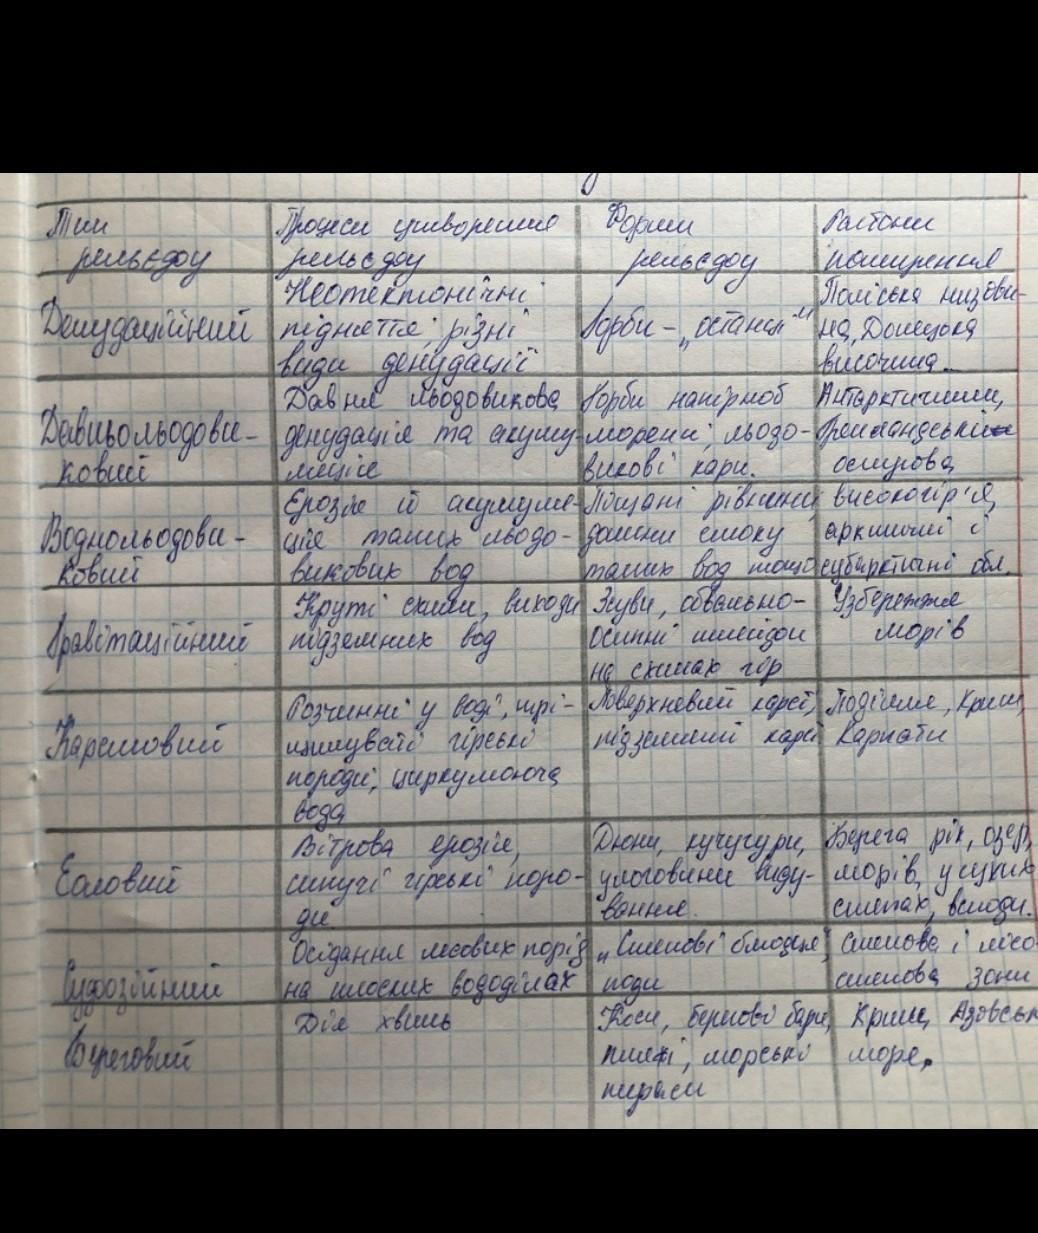 Тип
рельєфу
Процеси утворення
рельєфу
Форми
рельєфу
Райони
поширення
Денудаційний
Неотектонічні
підняття, різні
види денудації
Горби - „останці"
Поліська низови-
на, Донецька
височина.
Давньольодови-
ковий
Давня льодовикова
денудація та акуму-
ляція
Горби напірної
морени, льодо-
викові кари.
Антарктичний,
Гренландський
острова
Водно­льодови-
ковий
Ерозія й акумуля-
ція талих льодо-
викових вод
Піщані рівнини,
долини стоку
талих вод тощо
високогір'я,
арктичні і
субарктичні обл.
Гравітаційний
Круті схили, виходи
підземних вод
Зсуви, обвально-
осипні шлейфи
на схилах гір
Узбережжя
морів
Карстовий
Розчинні у воді, трі-
щинуваті гірські
породи, циркулююча
вода
Поверхневий карст,
підземний карст
Поділля, Крим,
Карпати
Еоловий
Вітрова ерозія,
сипучі гірські поро-
ди.
Дюни, кучугури,
улоговини виду-
вання.
Берега рік, озер,
морів, у сухих
степах, всюди.
Суфозійний
Осідання лесових порід
на плоских вододілах
„Степові блюдця",
поди
Степова і лісо-
степова зони
Береговий
Дія хвиль
Коси, берегові бари,
пляжі, морські
тераси
Крим, Азовськ
море.